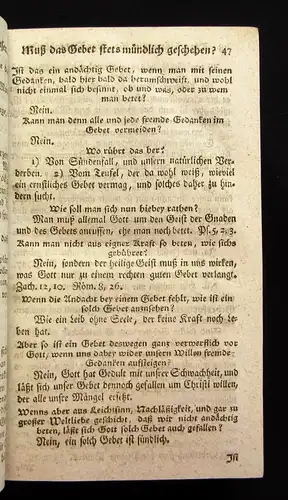 Muß das Gebet stets mündlich geschehen? 47
Ist das ein andächtig Gebet, wenn man mit seinen
Gedanken, bald hier bald da herumschweift, und wohl
nicht einmal sich besinnt, ob und was, oder zu wem
man betet?
Nein.
Kann man denn alle und jede fremde Gedanken im
Gebet vermeiden?
Nein.
Wo rührt das her?
1) Von Sündenfall, und unsern natürlichen Ver-
derben. 2) Vom Teufel, der da wohl weiß, wieviel
ein ernstliches Gebet vermag, und solches daher zu hin-
dern sucht.
Wie soll man sich nun hiebey rathen?
Man muß allemal Gott um den Geist der Gnaden
und des Gebets anruffen, ehe man noch betet. Ps. 5, 2. 3.
Kann man nicht aus eigner Kraft so beten, wie sichs
gebühret?
Nein, sondern der heilige Geist muß in uns wirken,
was Gott nur zu einem rechten guten Gebet verlangt.
Zach. 12, 10. Röm. 8, 26.
Wenn die Andacht bey einem Gebet fehlt, wie ist ein
solch Gebet anzusehen?
Wie ein Leib ohne Seele, der keine Kraft noch Le-
ben hat.
Aber so ist ein Gebet deswegen ganz verwerflich vor
Gott, wenn uns dabey wider unsern Willen fremde
Gedanken aufsteigen?
Nein, Gott hat Gedult mit unsrer Schwachheit, und
läßt sich unser Gebet dennoch gefallen um Christi willen,
der alle unsre Mängel ersetzt.
Wenns aber aus Leichtsinn, Nachläßigkeit, und gar zu
grosser Weltliebe geschicht, daß wir nicht andächtig
beten, läßt sich Gott solch Gebet auch gefallen?
Nein, ein solch Gebet ist sündlich.
Ist